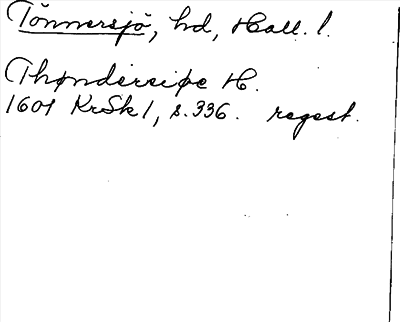 Tönnersjö, hd, Hall. l.
Thøndersiøe H.
1601 KrSk 1, s. 336. regest.